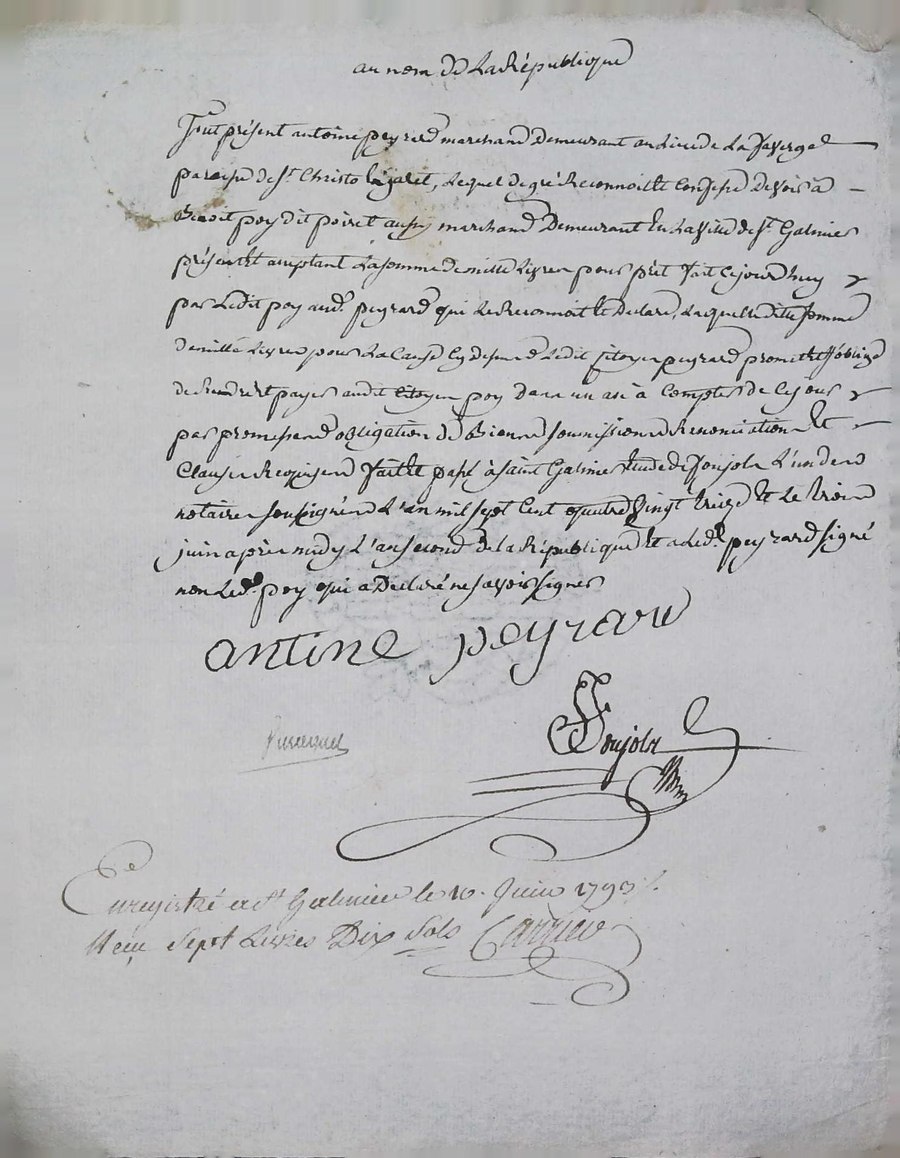 au nom de La République
Fut présent antoine peyrard marchand Demeurant au Lieu de La faverge
paroisse de st Christo Lequel de gré Reconnoit Et Confesse Devoir à
Benoit poy dit poiret aussy marchand Demeurant En La ville de st Galmier
présent Et aceptant La somme de mille Livres pour prêt fait Cejourd'huy
par Ledit poy aud. peyrard qui Le Reconnoit Et Declare, Laquelle ditte somme
De mille Livres pour La Cause Cy dessus Ledit Citoyen peyrard promet Et s'oblige
de Rendre Et payer audit Citoyen poy Dans un an à Compter de Ce jour
par promesses obligation De Biens soumissions Renonciations Et
Clauses Requises fait Et passé à saint Galmier Etude de Joujoln L'un des
notaires soussignés L'an mil sept Cent quatre vingt treize Et Le trois
juin après midy L'an second De la République Et a Led. peyrard signé
non Led. poy qui a Declaré ne savoir signer
antine peyrard
Enregistré a st Galmier le 10. Juin 1793
Reçu Sept Livres Dix Sols Carrier